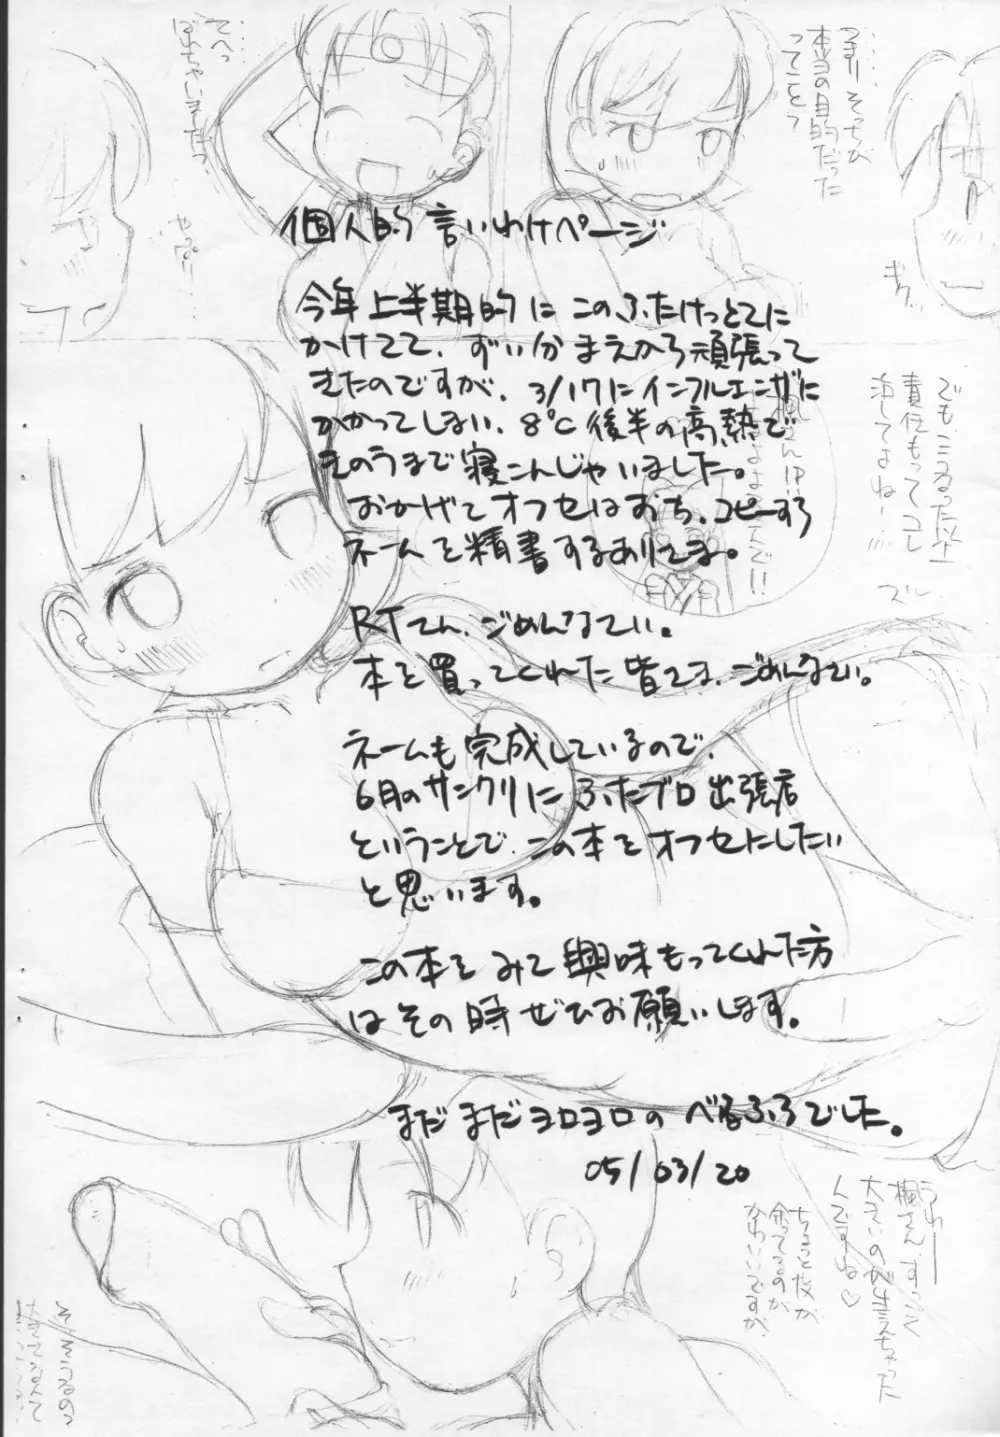 個人的言いわけページ
今年上半期的にこのふたけっとさに
かけてて、ずい分まえから頑張って
きたのですが、3/17にインフルエンザに
かかってしまい、8℃後半の高熱で
きのうまで寝こんじゃいました。
おかげさまでオフセはおち、コピーすら
ネームを精書するありさま。
RTさん、ごめんなさい。
本を買ってくれた皆さま、ごめんなさい。
ネームも完成しているので、
6月のサンクリにふたプロ出張店
ということで、この本をオフセにしたい
と思います。
この本をみて興味もってくれた方
はその時ぜひお願いします。
まだまだヨロヨロのべるふろでした。
05/03/20
つまりそっちが
本当の目的だった
ってこと?
てへっ
ばれちゃいました?
やっぱー……
ギク…
でも
責任もってコレ
治してよねー…
うわー
楓さん、すっごく
大きいのが生えちゃった
んですね♡
ちょっと皮が
余ってるのが
かわいいですが
そ、そうなの?